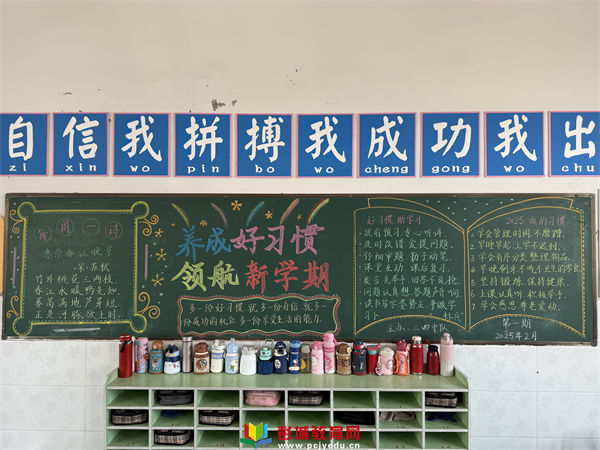 自信我拼搏我成功我出
zi xin wo pin bo wo cheng gong wo chu
每月一诗
惠崇春江晚景
宋·苏轼
竹外桃花三两枝,
春江水暖鸭先知。
蒌蒿满地芦芽短,
正是河豚欲上时。
养成好习惯
领航新学期
多一份好习惯,就多一份自信;就多一
份成功的机会,多一份享受生活的能力。
好习惯 助学习
提前预习,专心听讲。
及时改错,爱提问题。
仔细审题,勤于动笔。
课堂互动,课后复习。
发言先举手,回答不乱抢。
问题认真想,答题声音响。
主办:二四中队
2025·我的习惯
1.学会管理时间,不磨蹭。
2.早睡早起,上学不迟到。
3.学会有序分类、整理物品。
5.坚持锻炼,保持健康。
6.上课认真听,积极举手。
7.学会思考,善于发问。
第一期
2025年2月
彭城教育网
www.pcjyedu.cn